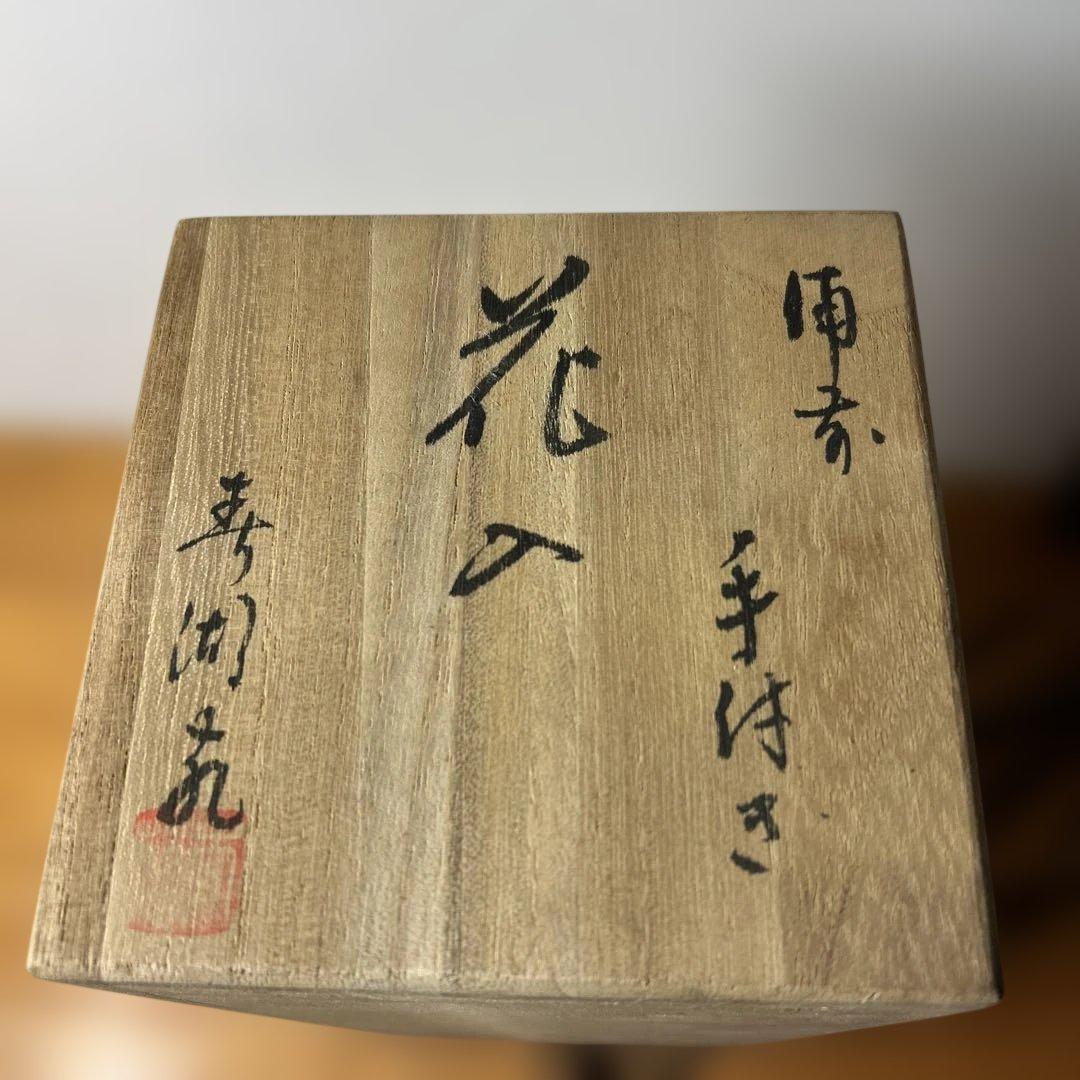 備前
手付き
花入
寿湖